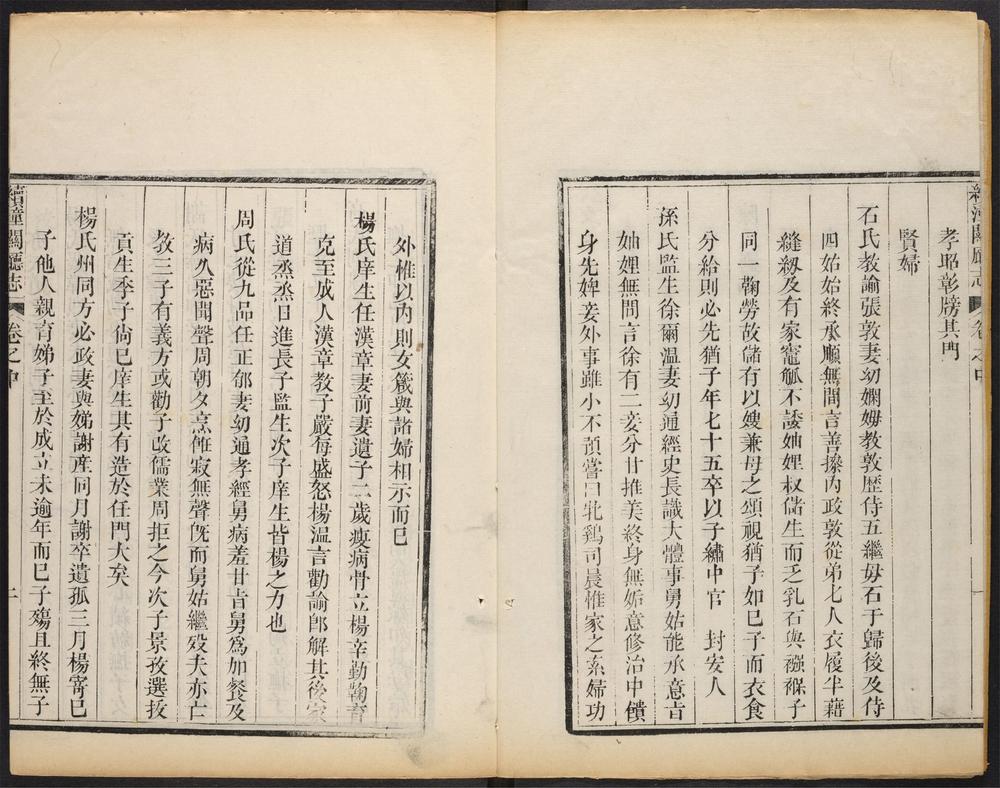 續潼關廳志 卷之中
孝昭彰牓其門
賢婦
石氏教諭張敦妻幼嫻姆教敦歷侍五繼母石于歸後及侍
四姑始終承順無間言善操內政敦從弟七人衣履半藉
縫紉及有家竈觚不諉妯娌叔儲生而乏乳石與襁褓子
同一鞠勞故儲有以嫂兼母之頌視猶子如己子而衣食
分給則必先猶子年七十五卒以子繡中官 封安人
孫氏監生徐爾溫妻幼通經史長識大體事舅姑能承意旨
妯娌無間言徐有二妾分甘推美終身無妬意修治中饋
身先婢妾外事雖小不預嘗曰牝鷄司晨惟家之索婦功
外惟以內則女箴與諸婦相示而已
楊氏庠生任漢章妻前妻遺子二歲瘦病骨立楊辛勤鞠育
克至成人漢章教子嚴每盛怒楊温言勸諭卽解其後家
道烝烝日進長子監生次子庠生皆楊之力也
周氏從九品任正郁妻幼通孝經舅病羞甘旨舅爲加餐及
病久惡聞聲周朝夕烹飪寂無聲旣而舅姑繼歿夫亦亡
教三子有義方或勸子改儒業周拒之今次子景孜選拔
貢生季子尙已庠生其有造於任門大矣
楊氏州同方必政妻與娣謝産同月謝卒遺孤三月楊寄己
子他人親育娣子至於成立未逾年而已子殤且終無子
續潼關廳志 卷之中 二